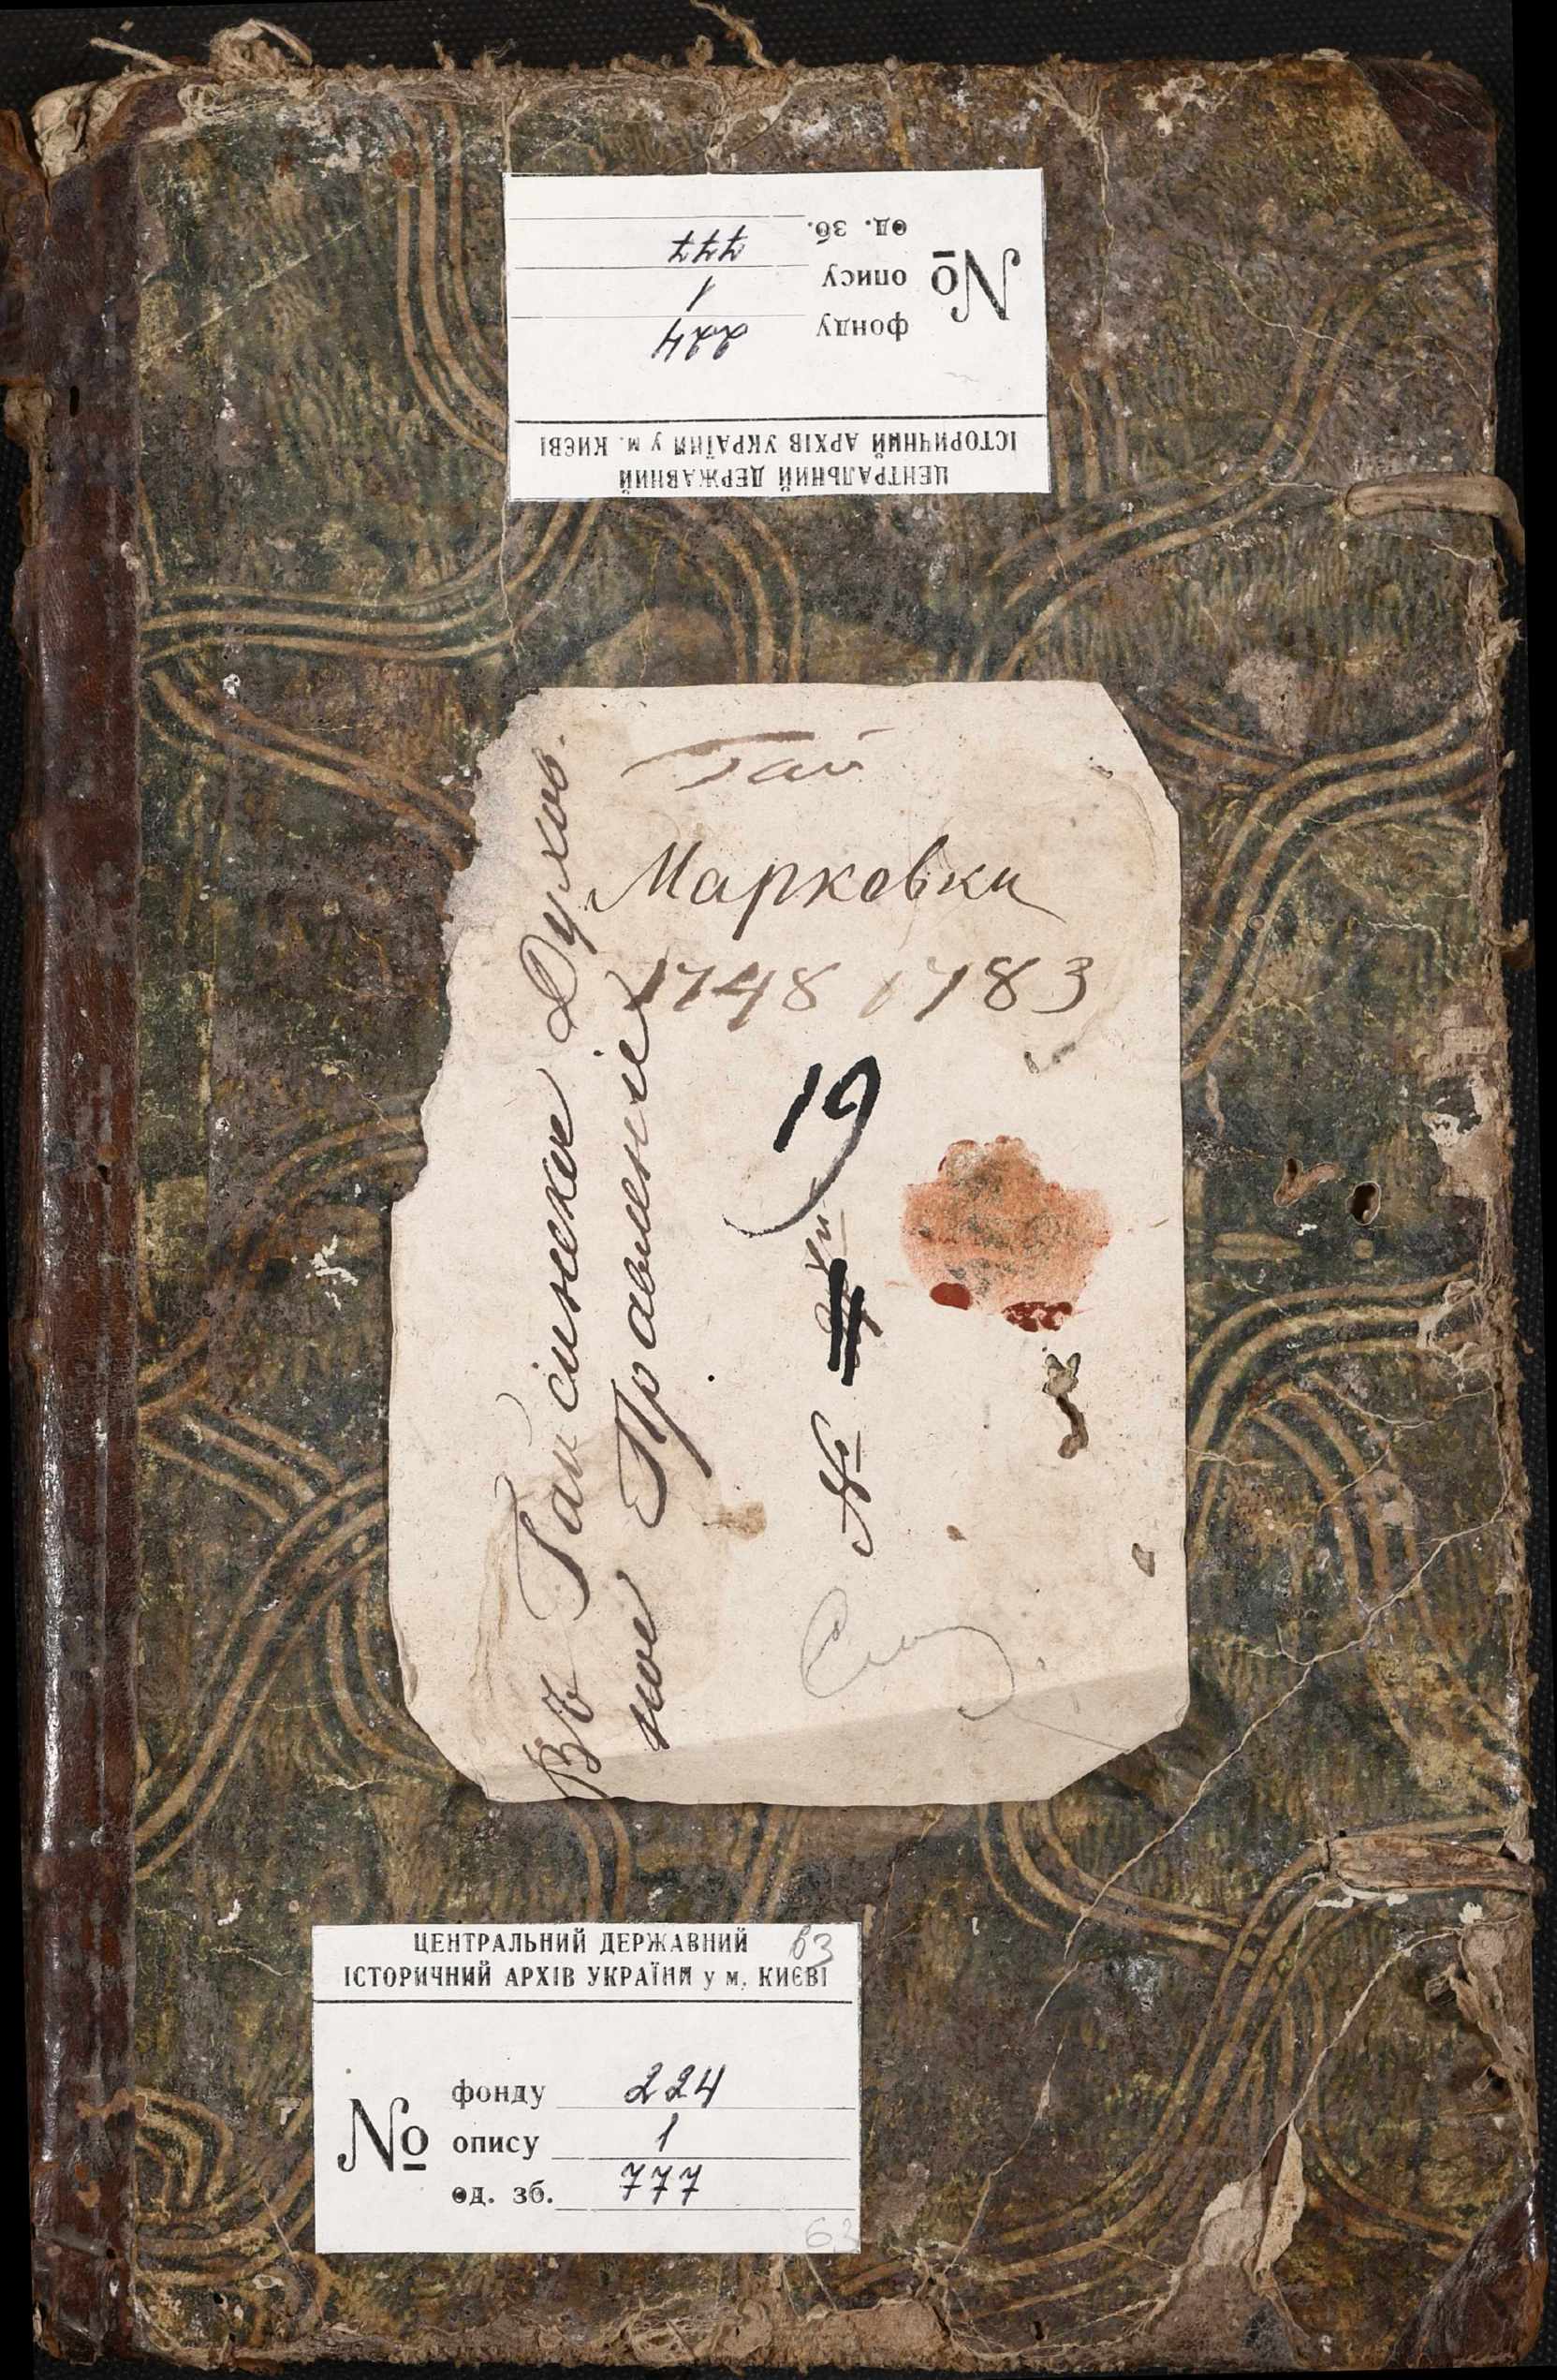 ЦЕНТРАЛЬНИЙ ДЕРЖАВНИЙ
ІСТОРИЧНИЙ АРХІВ УКРАЇНИ у м. КИЄВІ
№
фонду 224
опису 1
од. зб. 777
Гай
Марковки
1748 1783
19
Въ Гайсинское Духов.
ное Правленіе
№
ЦЕНТРАЛЬНИЙ ДЕРЖАВНИЙ
ІСТОРИЧНИЙ АРХІВ УКРАЇНИ у м. КИЄВІ
63
№
фонду 224
опису 1
од. зб. 777
63